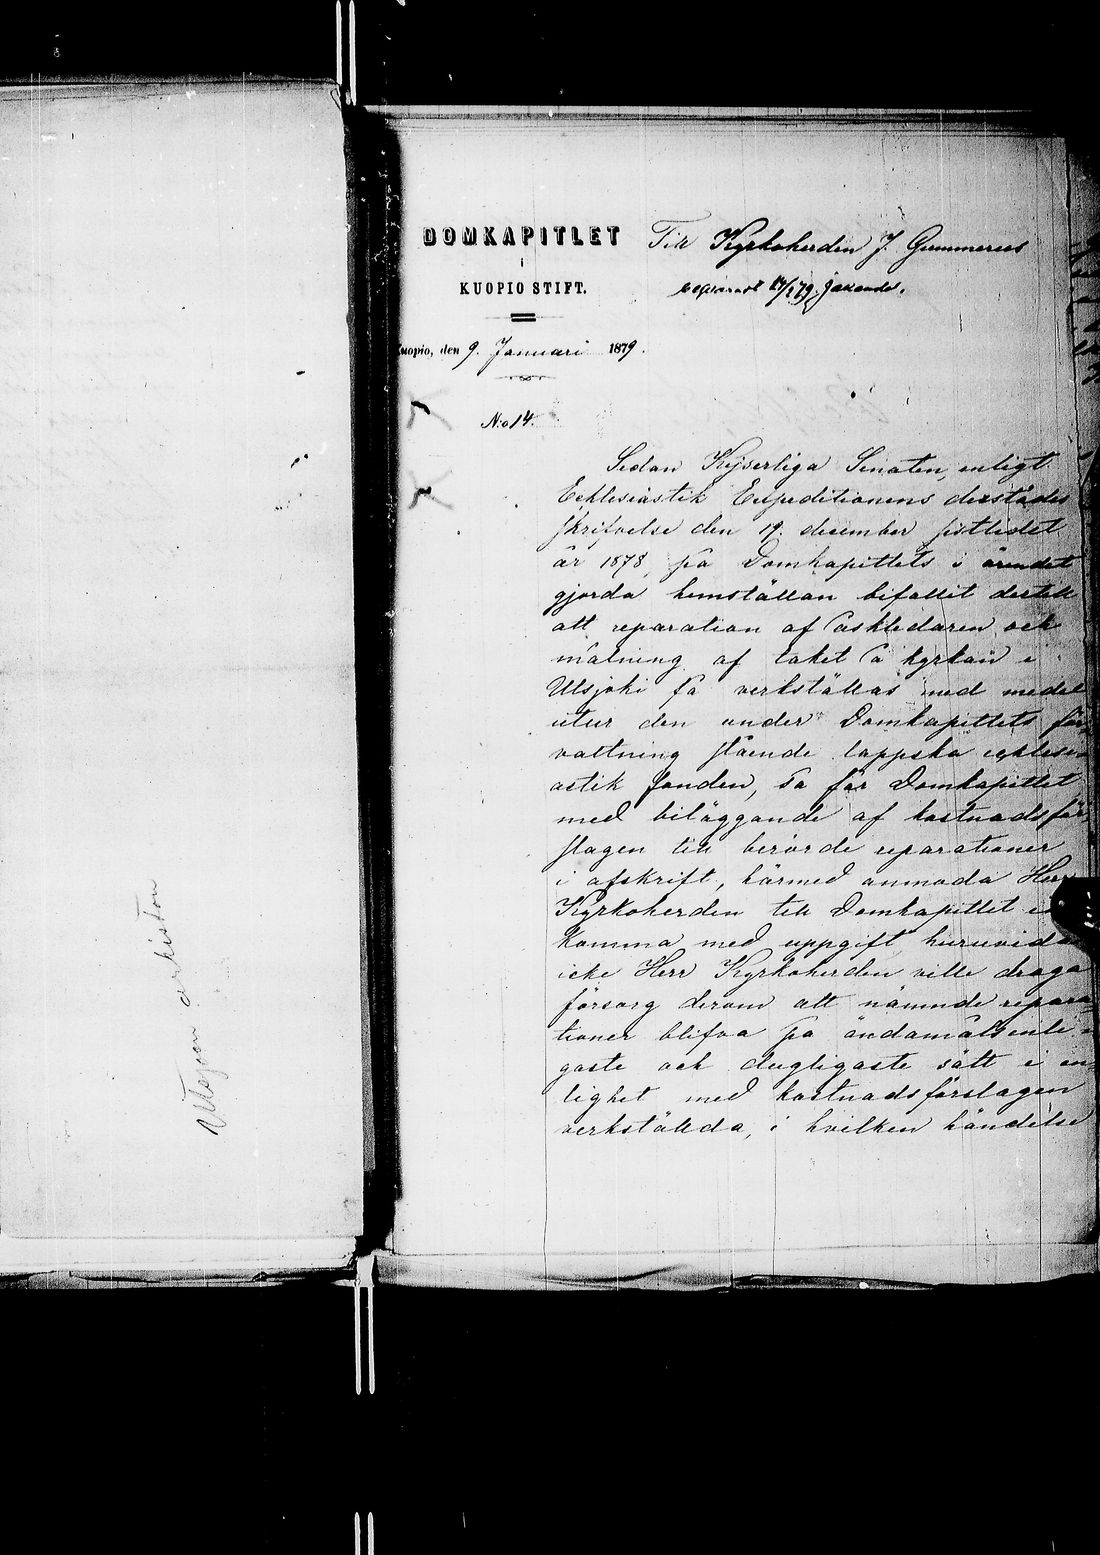 Utsjoen arkiston
DOMKAPITLET
i
KUOPIO STIFT.
Kuopio, den 9. Januari 1879.
N:o 14.
Till Kyrkoherden J. Gummerus
besvaradt 14/2 79. jakande.
Sedan Kejserliga Senaten, enligt
Ecklesiastik Expeditionens derstädes
skrifvelse den 19. december sistledet
år 1878, på Domkapitlets i ärendet
gjorda hemställan bifallit dertill
att reparation af åskledaren och
målning af taket å kyrkan i
Utsjoki få verkställas med medel
utur den under Domkapitlets för-
valtning stående lappska ecklesi-
astik fonden, så får Domkapitlet
med biläggande af kostnadsför-
slagen till berörde reparationer
i afskrift, härmed anmoda Herr
Kyrkoherden till Domkapitlet in
komma med uppgift, huruvida
icke Herr Kyrkoherden ville draga
försorg derom att nämnde repara-
tioner blifva på ändamålsenli-
gaste och dugligaste sätt i en-
lighet med kostnadsförslagen
verkställda, i hvilken händelse